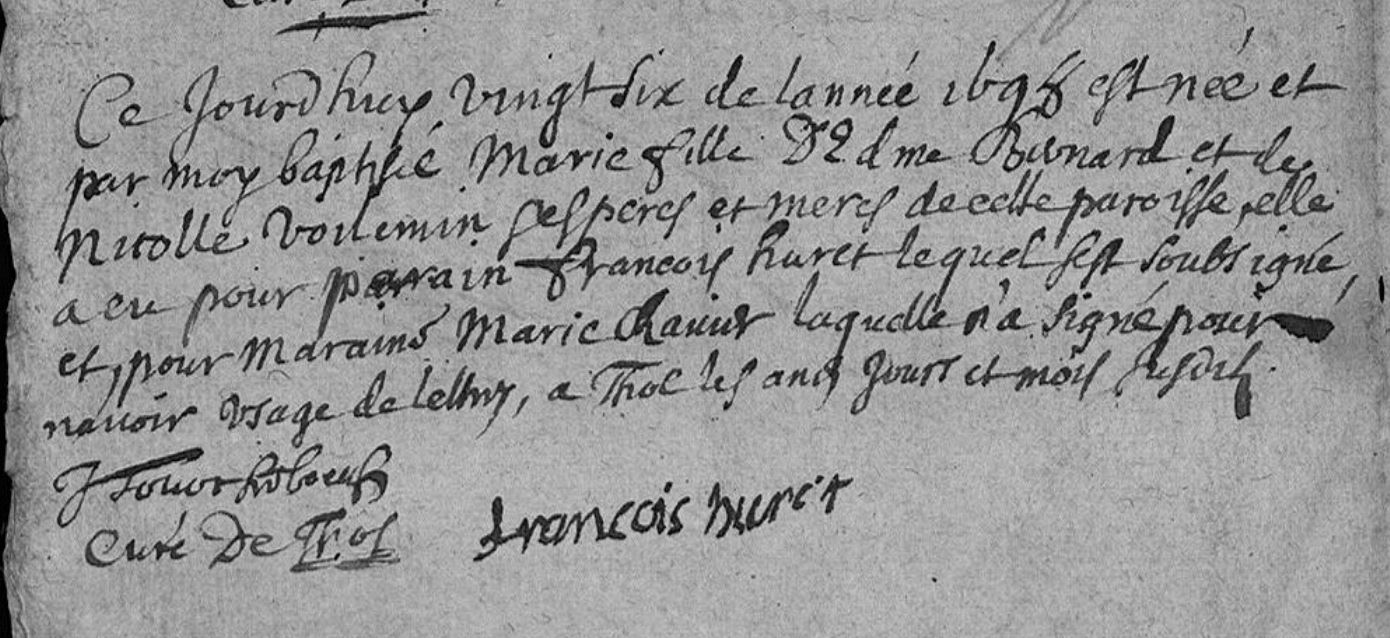 Ce Jourdhuy vingt six de lannée 1698 est née et
par moy baptisé Marie fille D'Edme Bernard et de
Nicolle Voilemin ses peres et meres de cette paroisse, elle
a eu pour parain francois huret lequel sest soubsigné,
et, pour Maraine Marie laquelle n'a signé pour
navoir usage de lettres, a Thol les ans Jours et mois susdits.
Curé De Thol francois huret